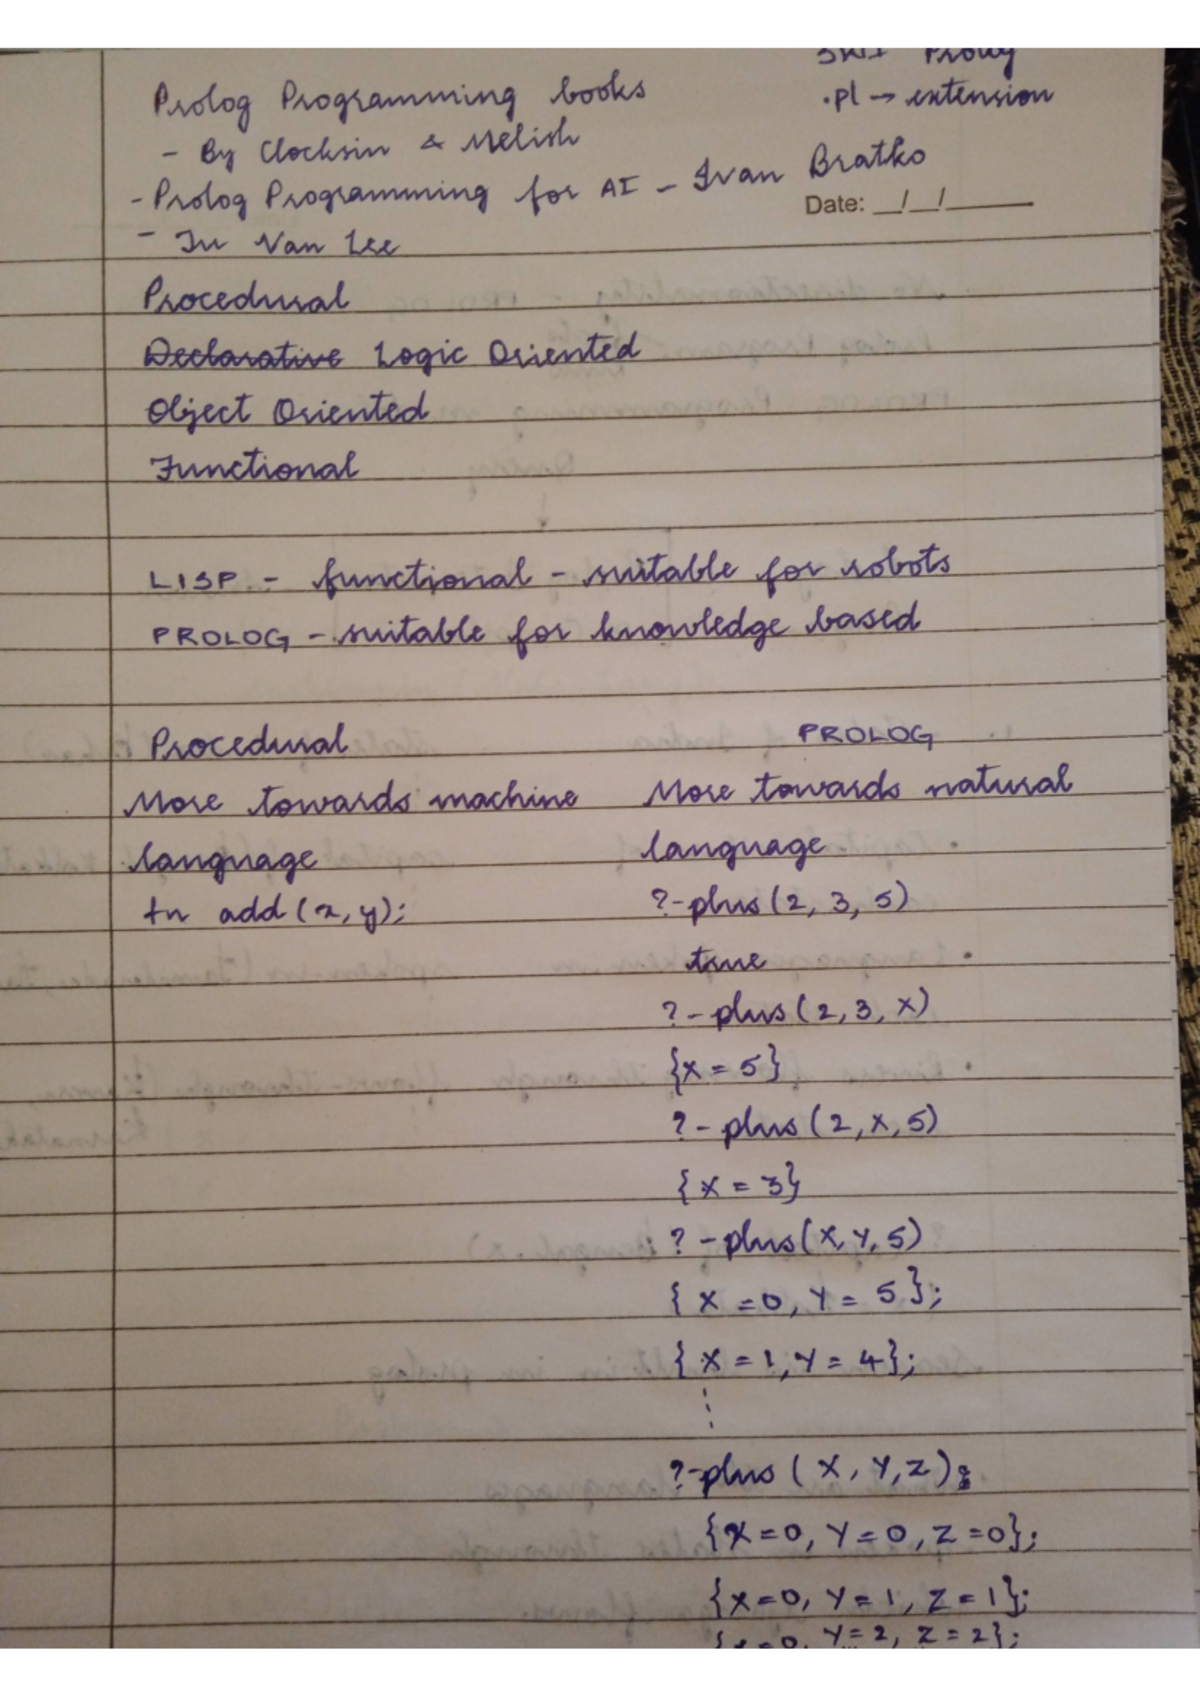 Prolog
Prolog Programming books
.pl → extension
- By Clocksin & Melish
- Prolog Programming for AI - Ivan Bratko
Date: __/__/______
- Van Lee
Procedural
Declarative Logic Oriented
Object Oriented
Functional
LISP - functional - suitable for robots
PROLOG - suitable for knowledge based
Procedural PROLOG
More towards machine More towards natural
language language
fn add (x, y); ?-plus (2, 3, 5)
true
?- plus (2, 3, X)
{X = 5}
?- plus (2, X, 5)
{X = 3}
?- plus (X, Y, 5)
{X = 0, Y = 5};
{X = 1, Y = 4};
?-plus (X, Y, Z);
{X=0, Y=0, Z=0};
{X=0, Y=1, Z=1};
{X=0, Y=2, Z=2};